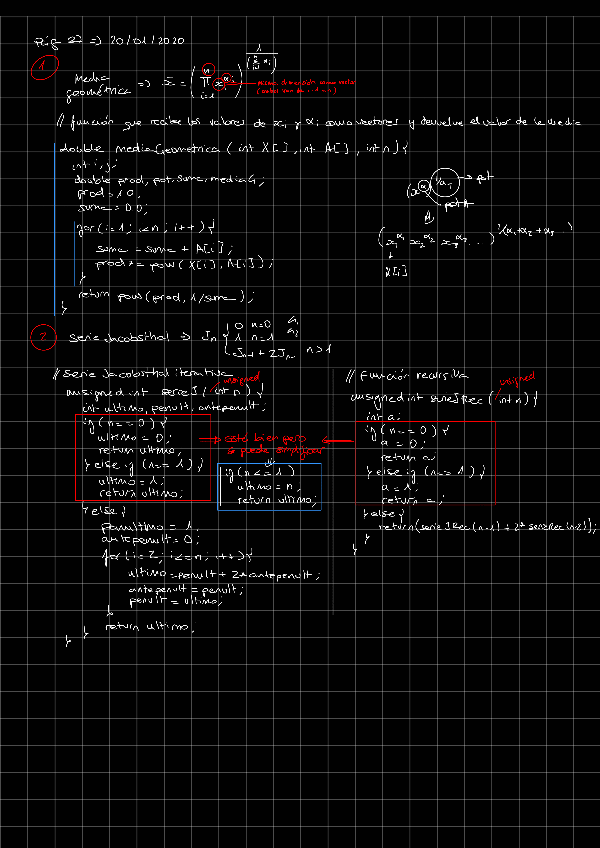 Pág 22 => 20/01/2020
1
Media geométrica => x̄ = ( n ∏ i=1 x_i^αi ) 1/(n Σ i=1 αi)
misma dimensión como vector
// función que recibe los valores de xi y αi como vectores y devuelve el valor de la media
double mediaGeometrica ( int X[], int A[], int n) {
int i, j;
double prod, pot, suma, mediaG;
prod = 1.0;
suma = 0.0;
for (i=1; i<n; i++) {
suma = suma + A[i];
prod *= pow( X[i], A[i]);
}
return pow(prod, 1/suma);
}
pot
A
(x1^α1 x2^α2 x3^α3 ...)^1/(α1+α2+α3 ...)
X[i]
2
Serie Jacobsthal => Jn { 0 n=0
1 n=1
n>1
// Serie Jacobsthal iterativa
unsigned
unsigned int serieJ ( int n) {
int ultimo, penult, antepenult;
if (n == 0) {
ultimo = 0;
return ultimo;
} else if (n == 1) {
ultimo = 1;
return ultimo;
} else {
penultimo = 1;
antepenult = 0;
for (i=2; i<=n; i++) {
ultimo = penult + 2*antepenult;
antepenult = penult;
penult = ultimo;
}
return ultimo;
}
}
está bien pero
se puede simplificar
if (n <= 1)
ultimo = n,
return ultimo;
// Función recursiva
unsigned
unsigned int serieJRec ( int n) {
int a;
if (n == 0) {
a = 0;
return a
} else if (n == 1) {
a = 1;
return
} else {
return (serieJRec (n-1) + 2* serieJRec (n-2));
}
}